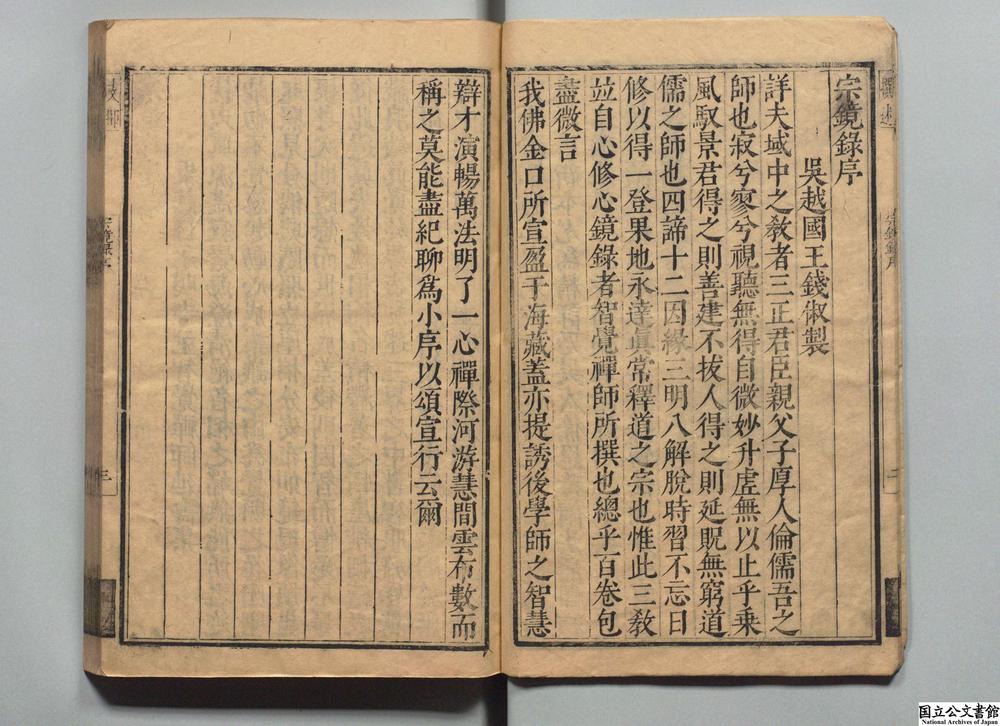 宗鏡錄序
吳越國王錢俶製
詳夫域中之教者三正君臣親父子厚人倫儒吾之
師也寂兮寥兮視聽無得自微妙升虛無以止乎乗
風馭景君得之則善建不拔人得之則延貺無窮道
儒之師也四諦十二因緣三明八解脫時習不忘日
修以得一登果地永達眞常釋道之宗也惟此三教
竝自心修心鏡錄者智覺禪師所撰也總乎百卷包
盡微言
我佛金口所宣盈于海藏蓋亦提誘後學師之智慧
辯才演暢萬法明了一心禪際河游慧間雲布數而
稱之莫能盡紀聊爲小序以頌宣行云爾
宗鏡錄序
一
三
国立公文書館
National Archives of Japan